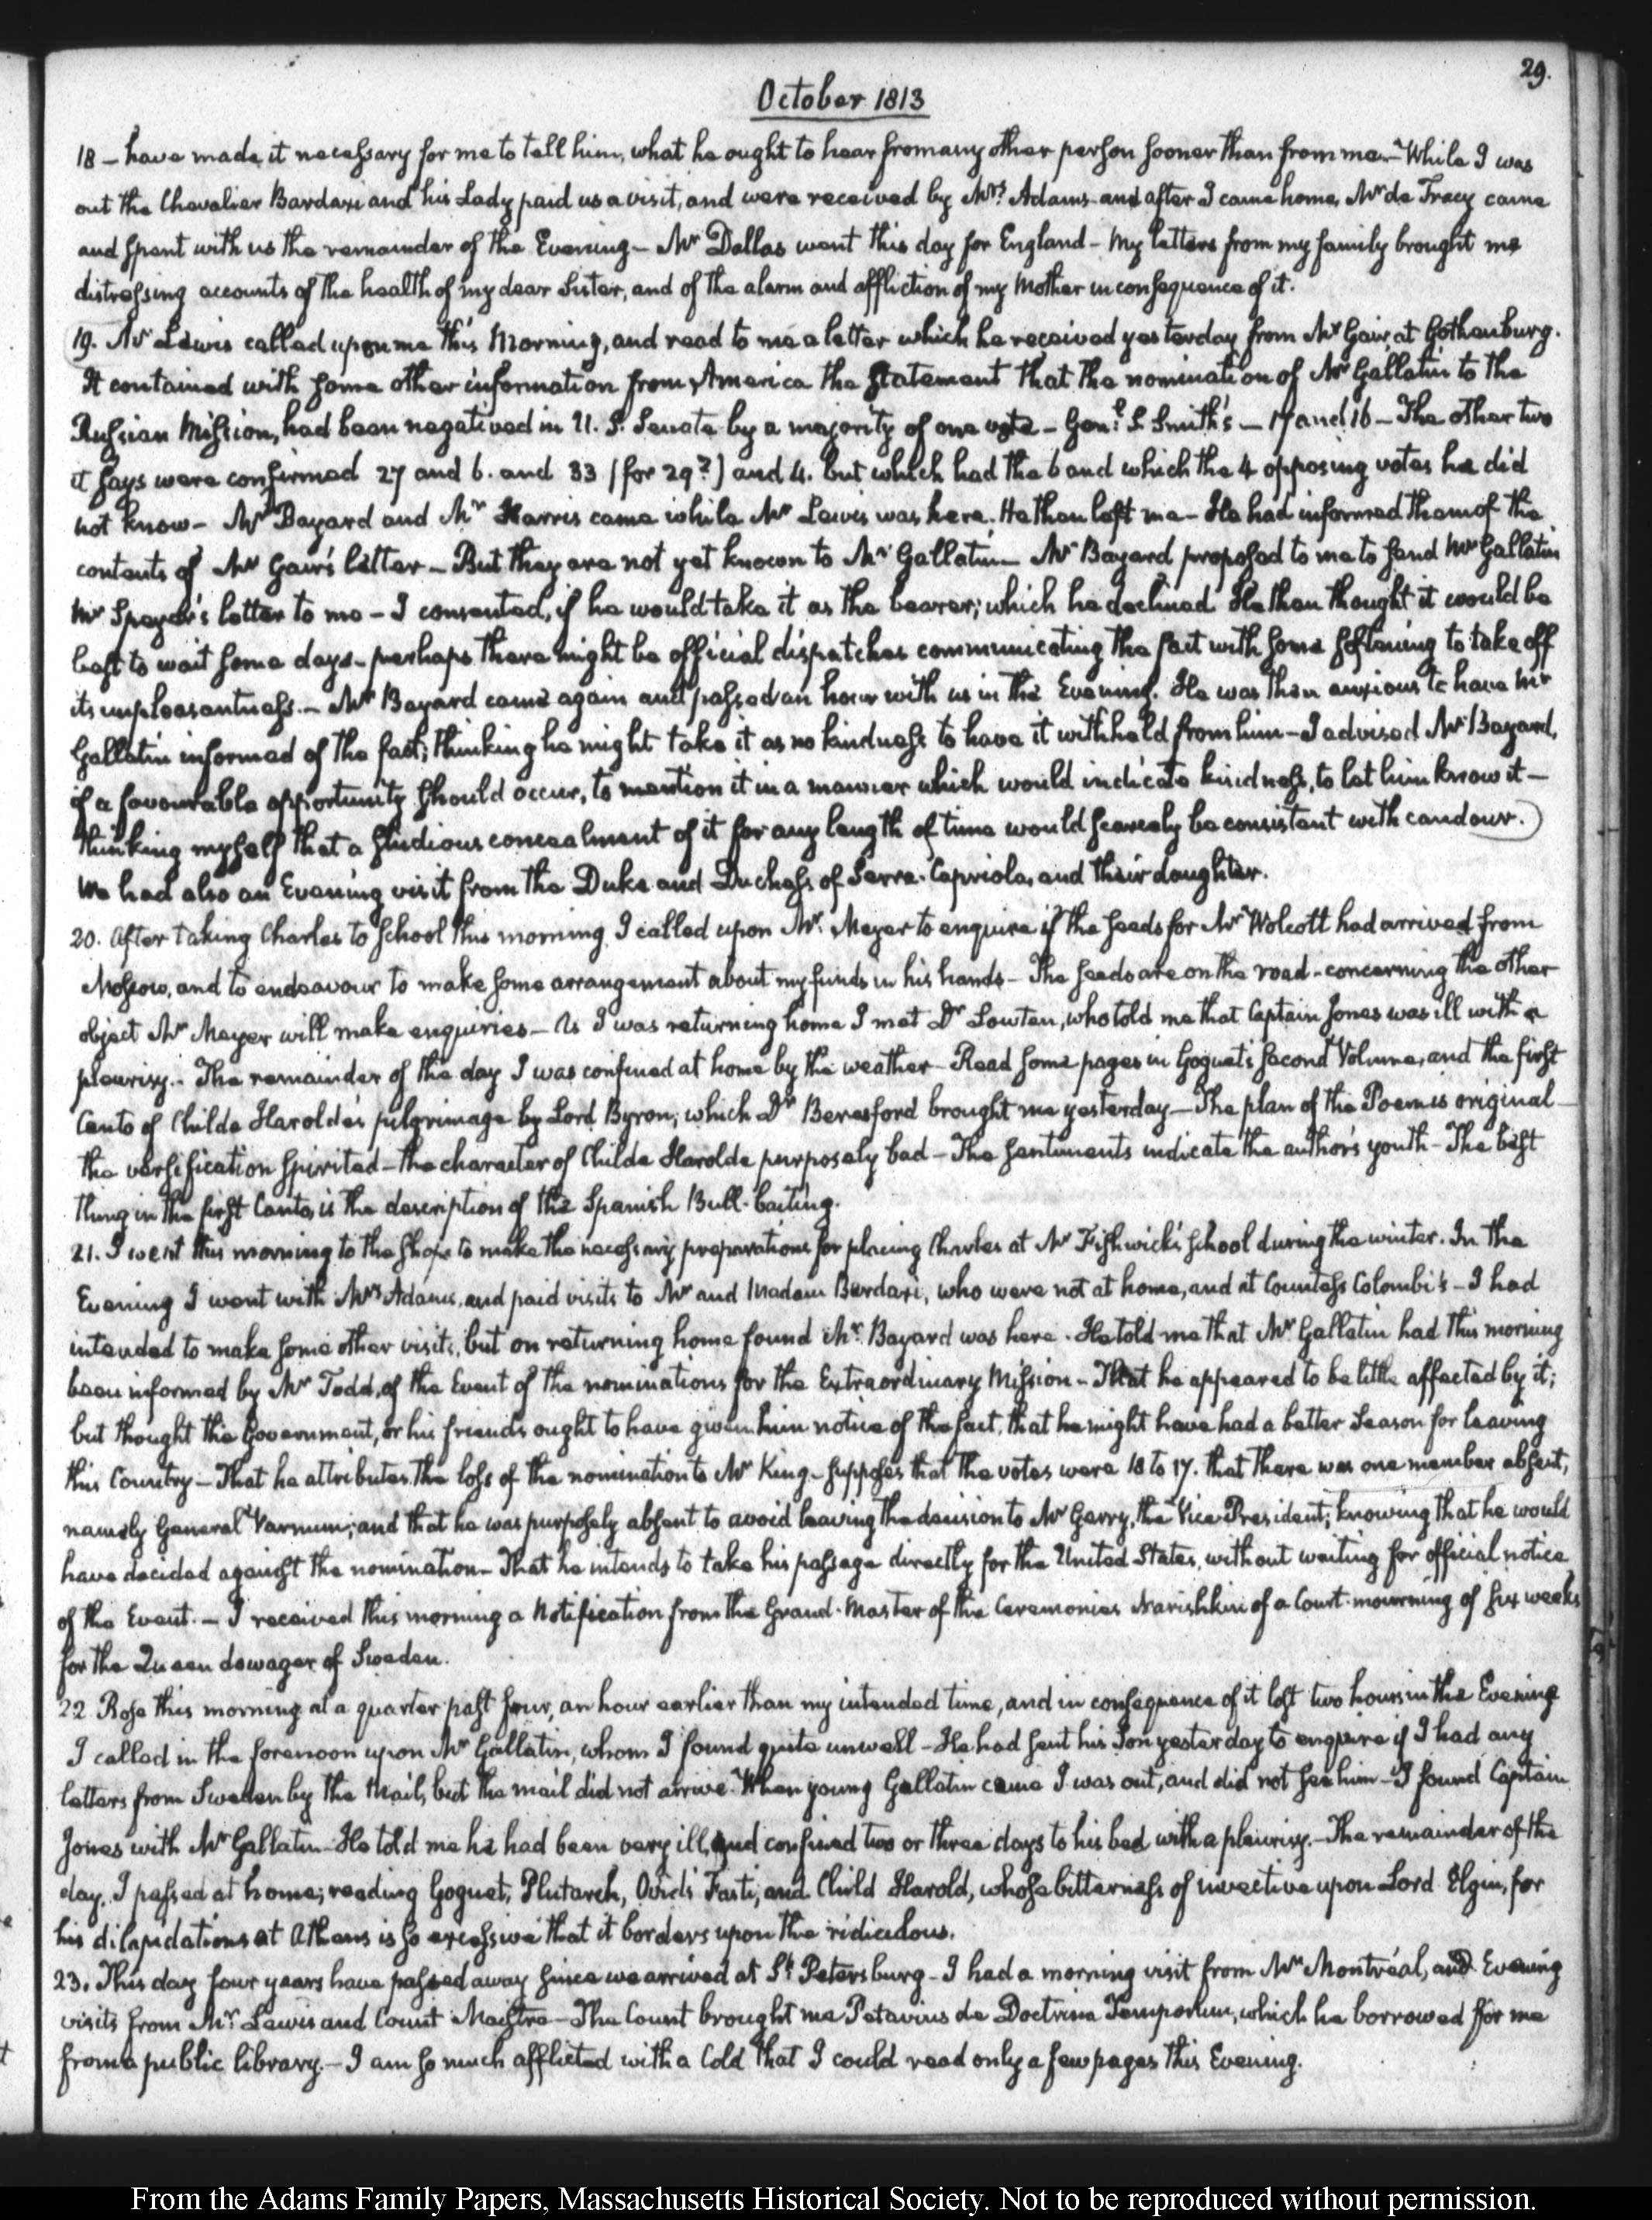 29.
October 1813
18 – have made it necessary for me to tell him, what he ought to hear from any other person sooner than from me. – While I was
out the Chevalier Bardaxi and his Lady paid us a visit, and were received by Mrs. Adams and after I came home, Mr de Tracy came
and spent with us the remainder of the Evening – Mr Dallas went this day for England – My letters from my family brought me
distressing accounts of the health of my dear Sister, and of the alarm and affliction of my Mother in consequence of it.
19. Mr Lewis called upon me this Morning, and read to me a letter which he received yesterday from Mr Gair, at Gothenburg.
It contained with some other information from America the statement that the nomination of Mr Gallatin to the
Russian Mission, had been negatived in U. S. Senate by a majority of one vote – Genl. S. Smith's – 17 and 16 – The other two
it says were confirmed 27 and 6. and 33 (for 29?) and 4. but which had the 6 and which the 4 opposing votes he did
not know – Mr Bayard and Mr Harris came while Mr Lewis was here. He then left me – He had informed them of the
contents of Mr Gair's letter – But they are not yet known to Mr Gallatin – Mr Bayard proposed to me to send Mr Gallatin
Mr Speyer's letter to me – I consented, if he would take it as the bearer; which he declined He then thought it would be
best to wait some days – perhaps there might be official dispatches communicating the fact with some softening to take off
its unpleasantness. – Mr Bayard came again and passed an hour with us in the Evening. He was then anxious to have Mr
Gallatin informed of the fact; thinking he might take it as no kindness to have it withheld from him – I advised Mr Bayard,
if a favourable opportunity should occur, to mention it in a manner which would indicate kindness, to let him know it –
thinking myself that a studious concealment of it for any length of time would scarcely be consistent with candour.)
We had also an Evening visit from the Duke and Duchess of Serra-Capriola, and their daughter.
20. After taking Charles to School this morning I called upon Mr. Meyer to enquire if the seeds for Mr Wolcott had arrived from
Moscow, and to endeavour to make some arrangement about my funds in his hands – The seeds are on the road – concerning the other
object Mr Meyer will make enquiries – As I was returning home I met Dr Lowten, who told me that Captain Jones was ill with a
pleurisy. – The remainder of the day I was confined at home by the weather – Read some pages in Goguet's second Volume, and the first
Canto of Childe Harolde's pilgrimage by Lord Byron; which Dr Beresford brought me yesterday – The plan of the Poem is original –
the versification spirited – the character of Childe Harolde purposely bad – The sentiments indicate the author's youth – The best
thing in the first Canto, is the description of the Spanish Bull-baiting.
21. I went this morning to the shops to make the necessary preparations for placing Charles at Mr Fishwick's school during the winter. In the
Evening I went with Mrs Adams, and paid visits to Mr and Madam Bardaxi, who were not at home, and at Countess Colombi's – I had
intended to make some other visits, but on returning home found Mr. Bayard was here. He told me that Mr Gallatin had this morning
been informed by Mr Todd, of the Event of the nominations for the Extraordinary Mission – That he appeared to be little affected by it;
but thought the Government, or his friends ought to have given him notice of the fact, that he might have had a better season for leaving
this Country – That he attributes the loss of the nomination to Mr King – supposes that the votes were 18 to 17. that there was one member absent,
namely General Varnum; and that he was purposely absent to avoid leaving the decision to Mr Gerry, the Vice President; knowing that he would
have decided against the nomination – That he intends to take his passage directly for the United States, without waiting for official notice
of the Event. – I received this morning a Notification from the Grand-Master of the Ceremonies Narishkin of a Court-mourning of six weeks
for the Queen dowager of Sweden.
22 Rose this morning at a quarter past four, an hour earlier than my intended time, and in consequence of it lost two hours in the Evening
I called in the forenoon upon Mr Gallatin, whom I found quite unwell – He had sent his Son yesterday to enquire if I had any
letters from Sweden by the Mail, but the mail did not arrive When young Gallatin came I was out, and did not see him – I found Captain
Jones with Mr Gallatin – He told me he had been very ill, and confined two or three days to his bed with a pleurisy. – The remainder of the
day, I passed at home; reading Goguet, Plutarch, Ovid's Fasti, and Child Harold, whose bitterness of invective upon Lord Elgin, for
his dilapidations at Athens is so excessive that it borders upon the ridiculous.
23. This day four years have passed away since we arrived at St Petersburg – I had a morning visit from Mr Montréal, and Evening
visits from Mr. Lewis and Count Maistre – The Count brought me Petavius de Doctrina Temporum, which he borrowed for me
from a public library. – I am so much afflicted with a Cold that I could read only a few pages this Evening.
From the Adams Family Papers, Massachusetts Historical Society. Not to be reproduced without permission.